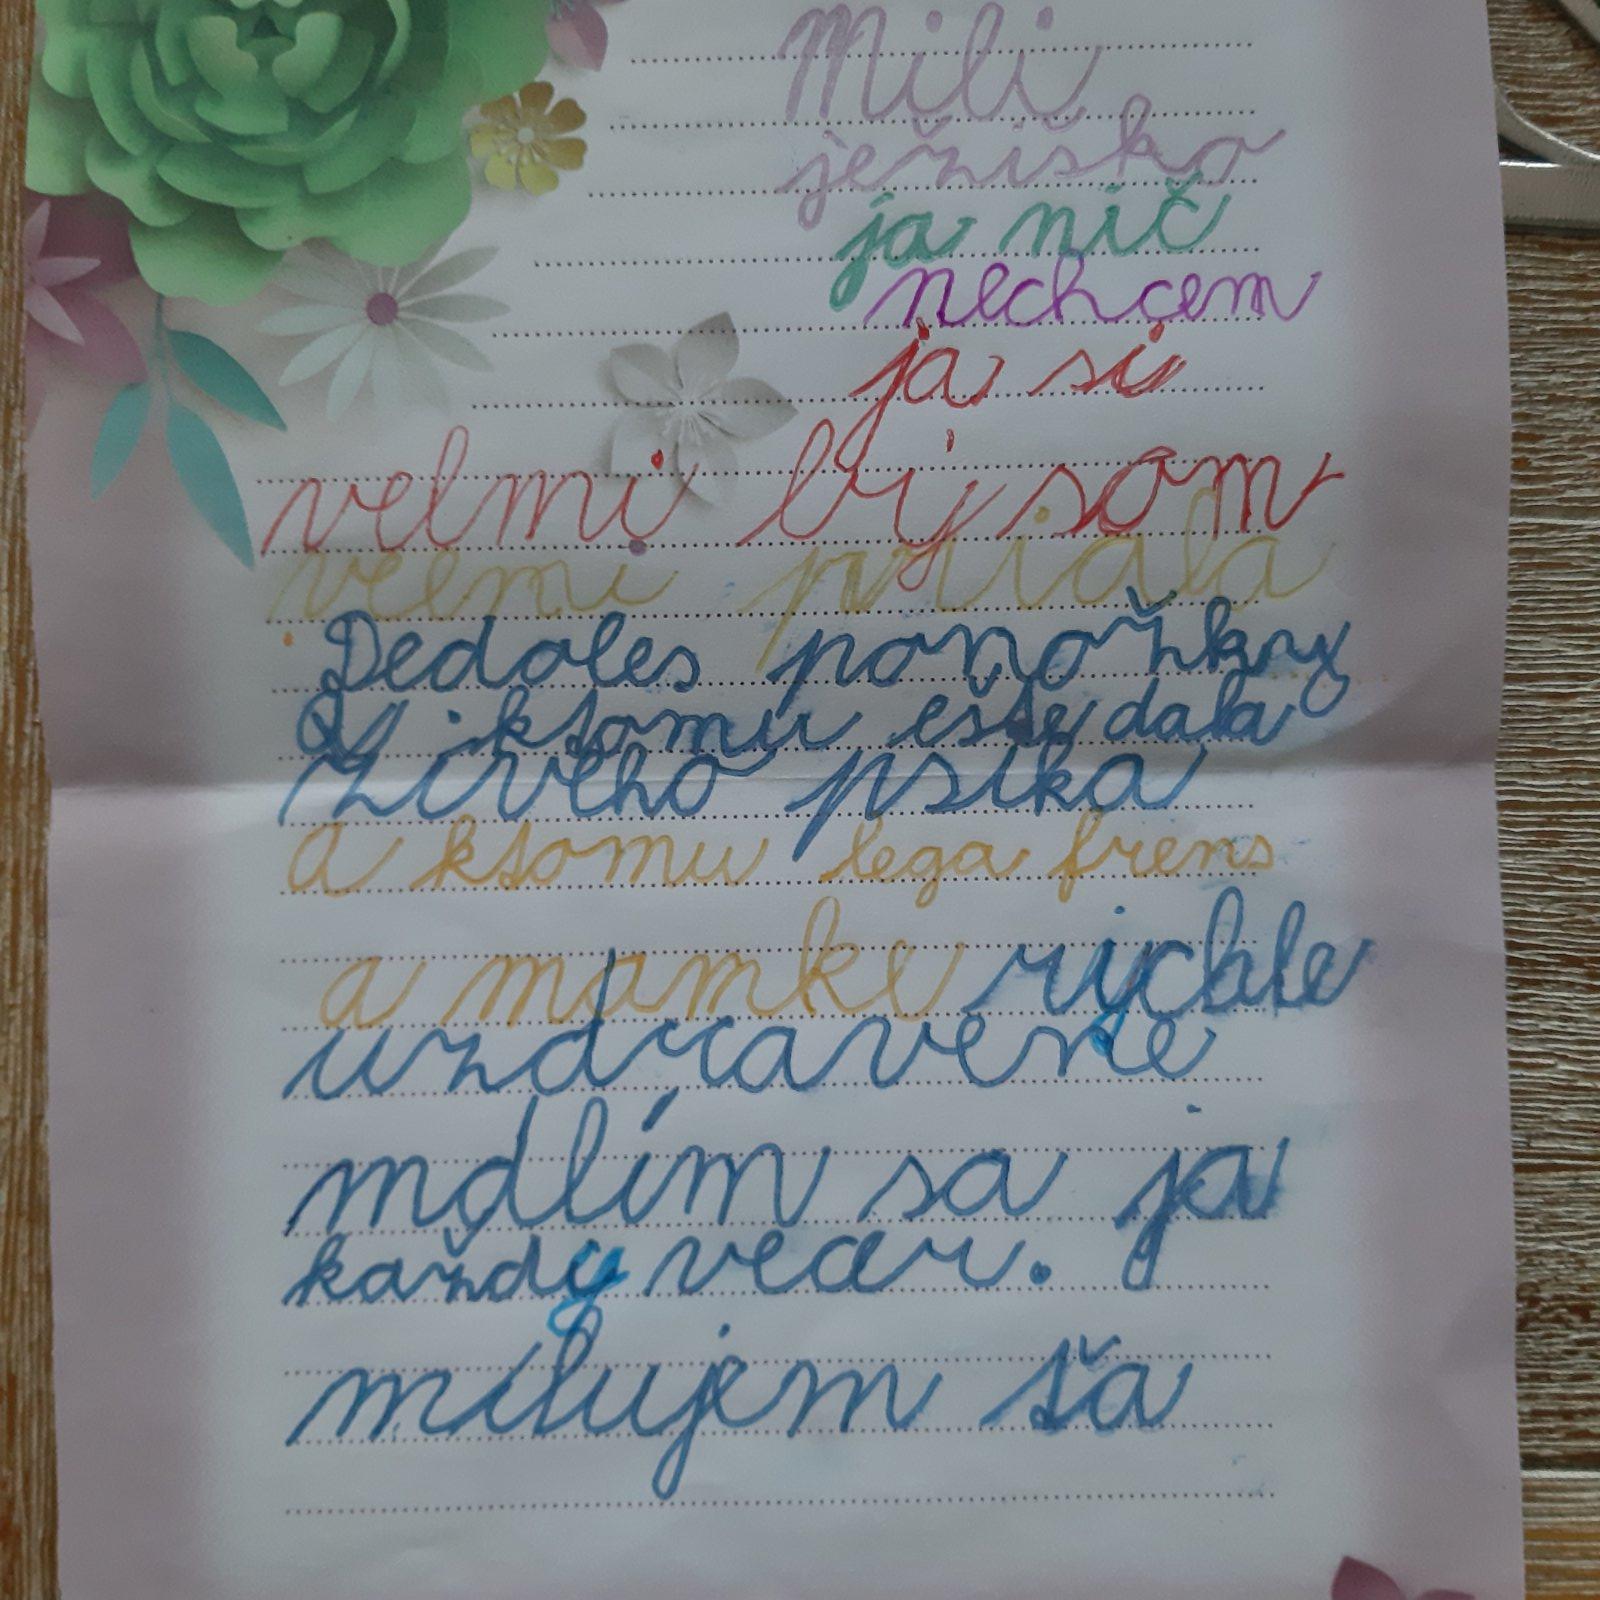 Mili
ježiško
ja nič
nechcem
ja si
velmi bi som
velmi priala
Dedoles ponožky
a ktomu ešte dala
živeho psika
a ktomu lega frens
a mamke rychle
uzdravene
mdlím sa ja
každy vecer.
milujem ťa